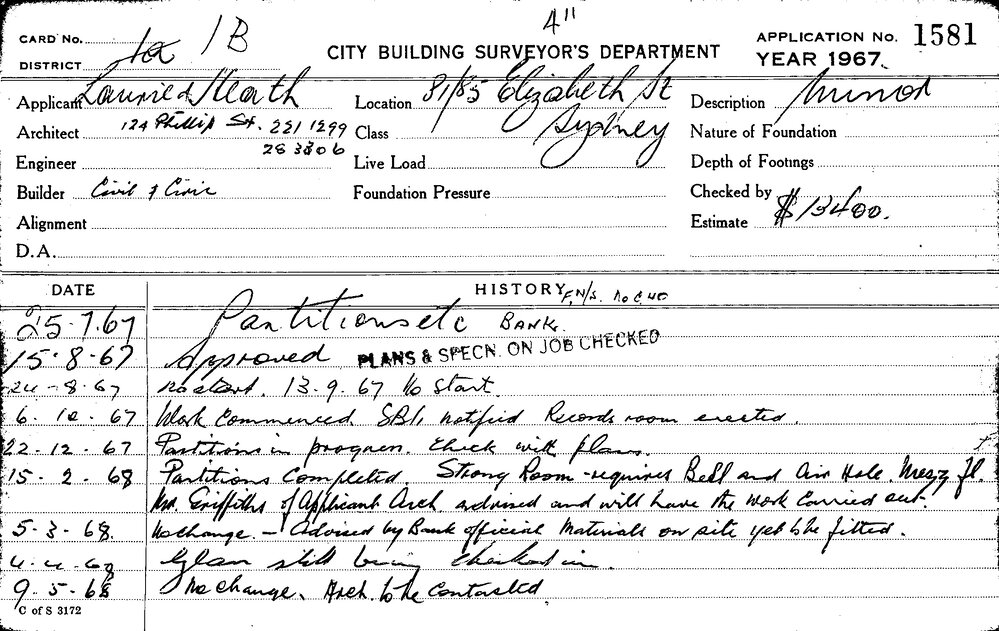 4"
CARD No.
1B
CITY BUILDING SURVEYOR'S DEPARTMENT
APPLICATION No. 1581
DISTRICT
YEAR 1967
Applicant Laurie & Heath
Location 81/85 Elizabeth St
Description Minor
Architect 124 Phillip St. 221 1299
Class Sydney
Nature of Foundation
28 3306
Engineer
Live Load
Depth of Footings
Builder Civil & Civic
Foundation Pressure
Checked by
Alignment
Estimate $13400.
D.A.
DATE
HISTORY F.N/S.
25.7.67 Partitions etc BANK.
15.8.67 Approved PLANS & SPECN. ON JOB CHECKED
24-8.67 No start. 13.9.67 No Start.
6.10.67 Work Commenced. notified Records room erected.
22.12.67 Partitions in progress. Check with plans.
15.2.68 Partitions Completed. Strong Room - requires Bell and Air Hole. Mezz fl.
Mr. Griffiths of Applicant Arch. advised and will have the work carried out.
5-3-68. No change. - Advised by Bank official Materials on site yet to be fitted.
still being
9.5.68 No change. Arch. to be contacted
C of S 3172